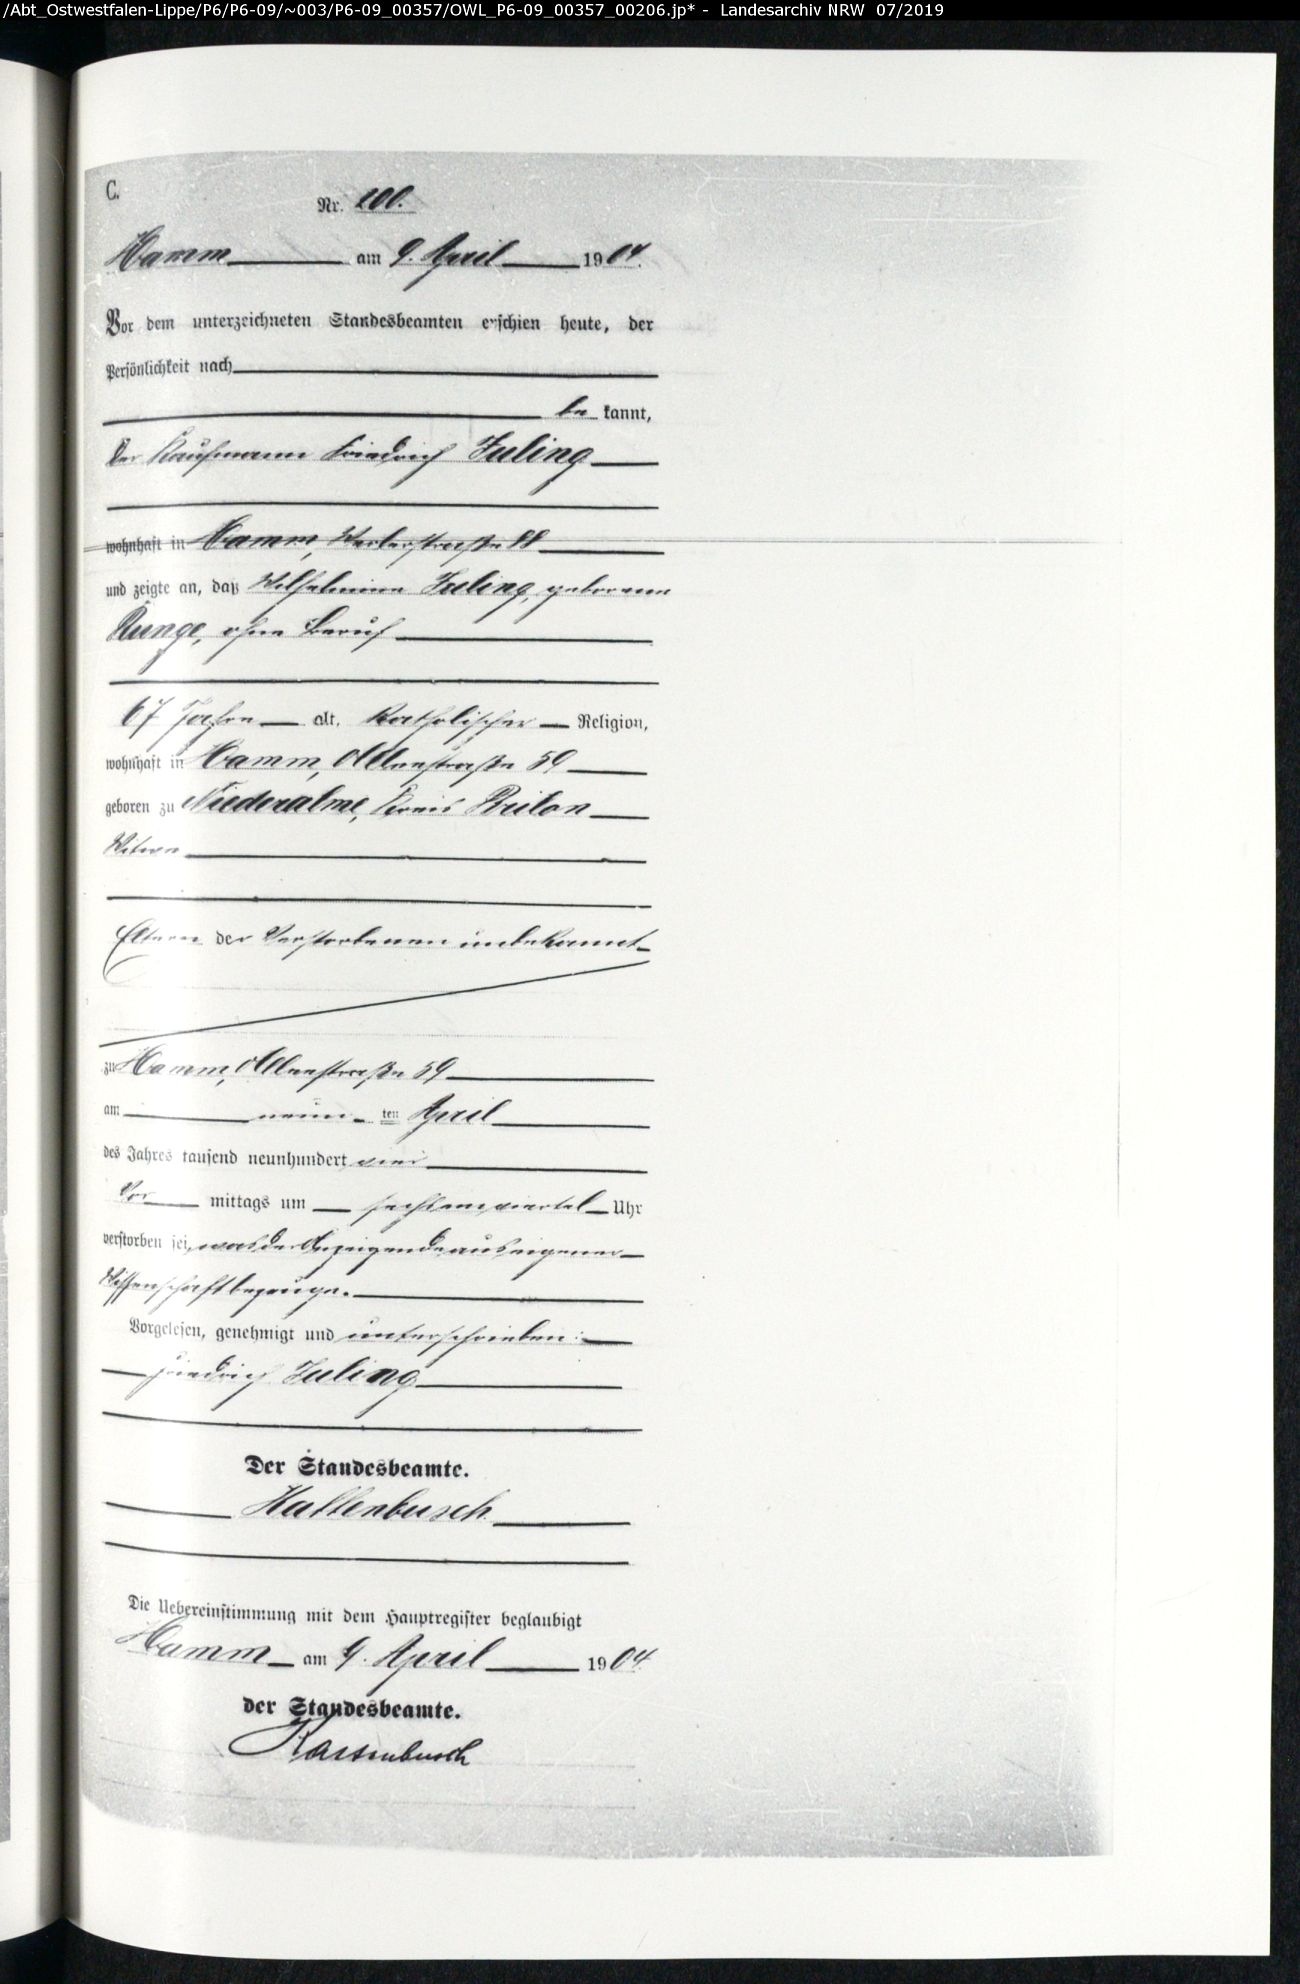 /Abt_Ostwestfalen-Lippe/P6/P6-09/~003/P6-09_00357/OWL_P6-09_00357_00206.jp* - Landesarchiv NRW 07/2019
C.
Nr. 200.
Hamm am 9. April 1904.
Vor dem unterzeichneten Standesbeamten erschien heute, der
Persönlichkeit nach
be kannt,
der Kaufmann Friedrich Juling
wohnhaft in Hamm, Werlerstraße 88
und zeigte an, daß Wilhelmine Juling, geborene
Runge, ohne Beruf
67 Jahre alt, katholischer Religion,
wohnhaft in Hamm, Alleestraße 59
geboren zu Niederalme, Kreis Brilon
Witwe
Eltern der Verstorbenen unbekannt
zu Hamm, Alleestraße 59
am neun ten April
des Jahres tausend neunhundert vier
Vor mittags um Uhr
verstorben sei, was der Anzeigende aus eigener
Wissenschaft bezeuge.
Vorgelesen, genehmigt und unterschrieben:
Friedrich Juling
Der Standesbeamte.
Die Uebereinstimmung mit dem Hauptregister beglaubigt
Hamm am 9. April 1904.
der Standesbeamte.